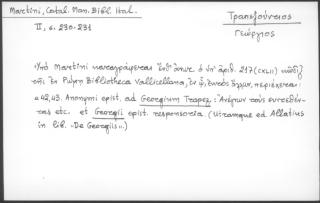 Martini, Catal. Man. Bibl. Ital.
II, σ. 230-231
Τραπεζούντιος
Γεώργιος
Ὑπὸ Martini καταγράφεται ὅπως ὁ ὑπ' ἀριθ. 217 (CXLII) κῶδιξ
τῆς ἐν Ρώμῃ Bibliotheca Vallicellana, ἐν ᾧ, ἐκτὸς ἄλλων, περιέχεται:
"42,43. Anonymi epist. ad Georgium Trapez: Ἀνέγνων τοὺς
etc. et Georgii epist. responsoria (utramque ed Allatius
in lib. "De Georgiis").